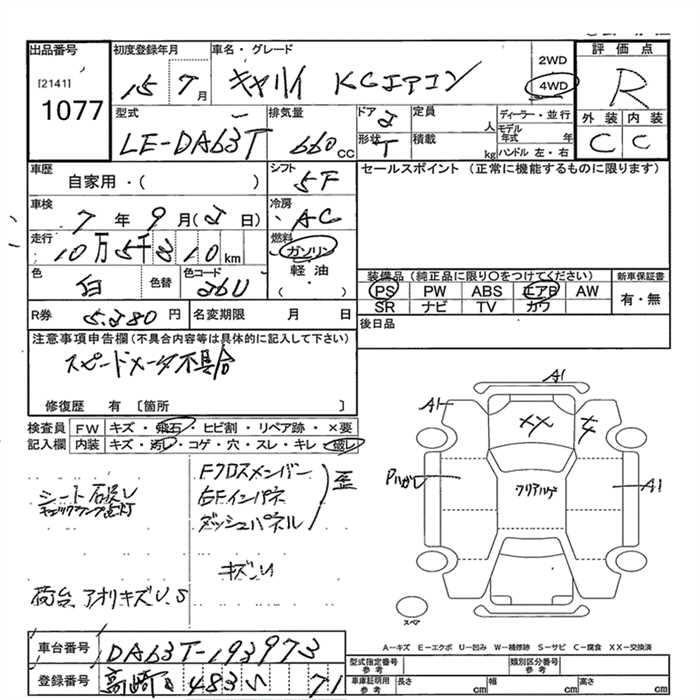 出品番号
[2141]
1077
初度登録年月
15 7月
車名・グレード
キャリイ KCエアコン
2WD
4WD
評価点
R
外装 内装
C C
型式
LE-DA63T
排気量
660 CC
ドア 2
形状 T
定員 人
積載 kg
ディーラー・並行
モデル年式 年
ハンドル 左・右
車歴
自家用・( )
シフト
5F
セールスポイント (正常に機能するものに限ります)
車検
7年9月(2日)
冷房
AC
走行
10万5千310km
燃料
ガソリン
軽油
( ・ )
色
白
色替
色コード
26U
装備品 (純正品に限り○をつけてください)
PS PW ABS エアB AW
SR ナビ TV カワ
新車保証書
有・無
R券 5,280円
名変期限 月 日
後日品
注意事項申告欄(不具合内容等は具体的に記入して下さい)
スピードメータ不具合
修復歴 有 〔箇所 〕
検査員記入欄
FW キズ・飛石・ヒビ割・リペア跡・×要
内装 キズ・汚レ・コゲ・穴・スレ・キレ・破レ
シート
チェックランプ点灯
荷台、アオリキズU、S
Fクロスメンバー
右Fインパネ
ダッシュパネル
歪
キズ、U
A1
A1
XX
Pハガレ
クリアハゲ
A1
スペア
A-キズ E-エクボ U-凹み W-補修跡 S-サビ C-腐食 XX-交換済
車台番号
DA63T-193973
登録番号
高崎 483 い 71
型式指定番号 参考
類別区分番号 参考
車庫証明用 参考
長さ cm
幅 cm
高さ cm